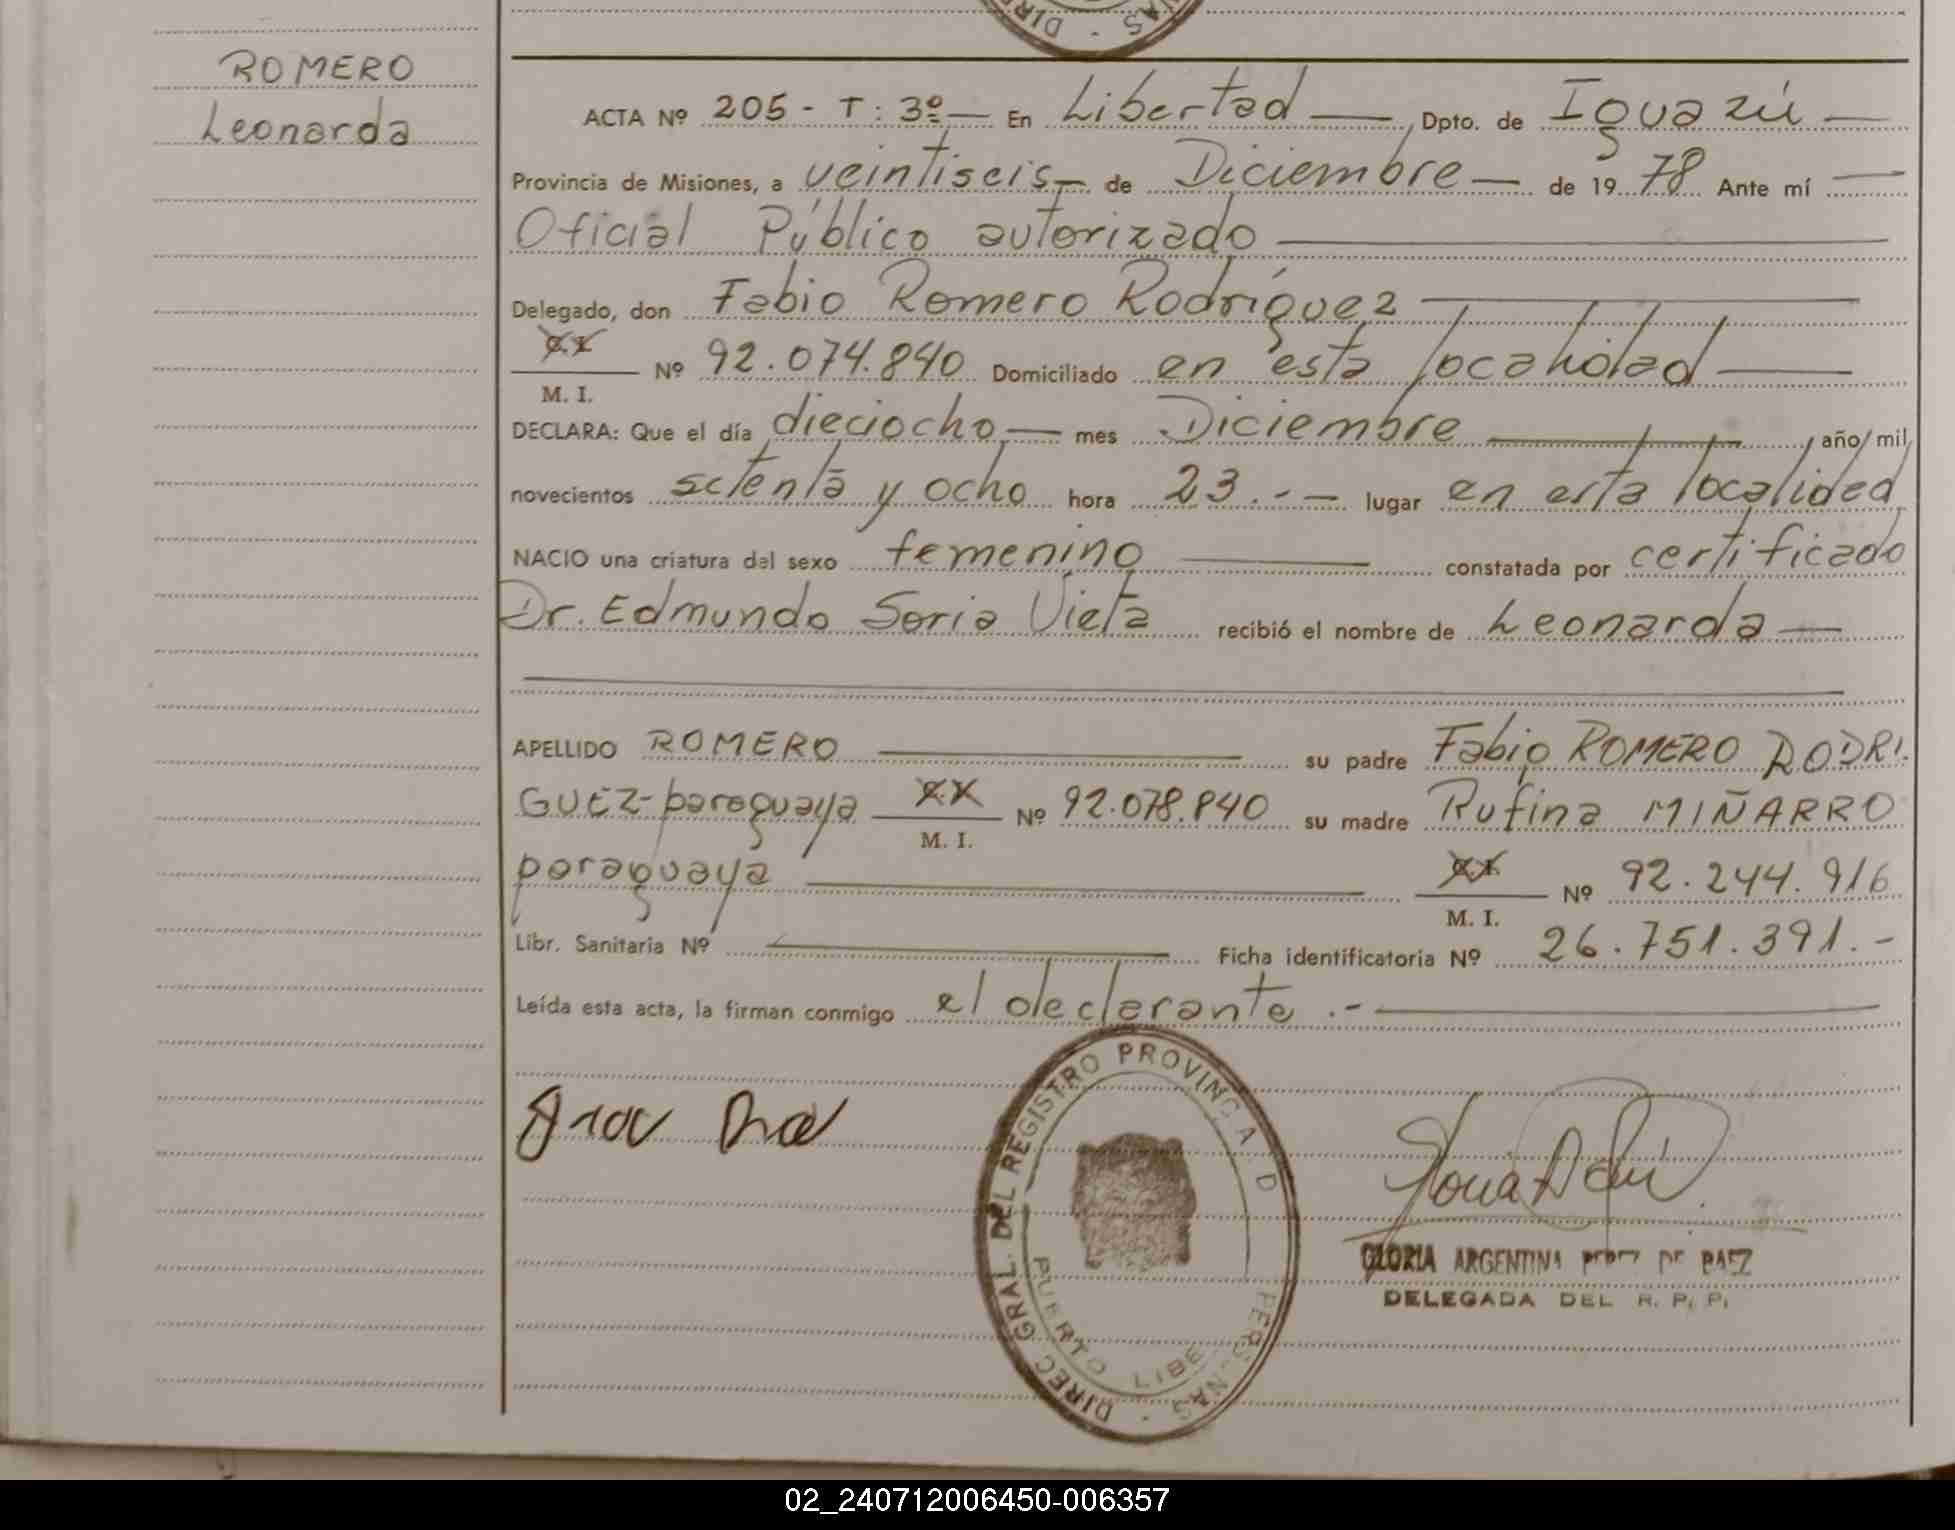 ROMERO
Leonarda
ACTA Nº 205 - T: 3º — En Libertad —, Dpto. de Iguazú —
Provincia de Misiones, a veintiseis — de Diciembre — de 1978 Ante mí —
Oficial Público autorizado —
Delegado, don Fabio Romero Rodríguez —
C.I.
M. I. Nº 92.074.840 Domiciliado en esta localidad —
DECLARA: Que el día dieciocho — mes Diciembre —, año mil
novecientos setenta y ocho hora 23.- — lugar en esta localidad
NACIO una criatura del sexo femenino — constatada por certificado
Dr. Edmundo Soria Vieta recibió el nombre de Leonarda —
APELLIDO ROMERO — su padre Fabio ROMERO RODRI.
GUEZ-paraguaya — M. I. Nº 92.078.840 su madre Rufina MIÑARRO
paraguaya — C.I. M. I. Nº 92.244.916
Libr. Sanitaria Nº — Ficha identificatoria Nº 26.751.391.-
Leída esta acta, la firman conmigo el declarante .- —
DIREC. GRAL. DEL REGISTRO PROVINC A D PERS NAS -
PUERTO LIBE
GLORIA ARGENTINA PEREZ DE BAEZ
DELEGADA DEL R. P. P.
02_240712006450-006357